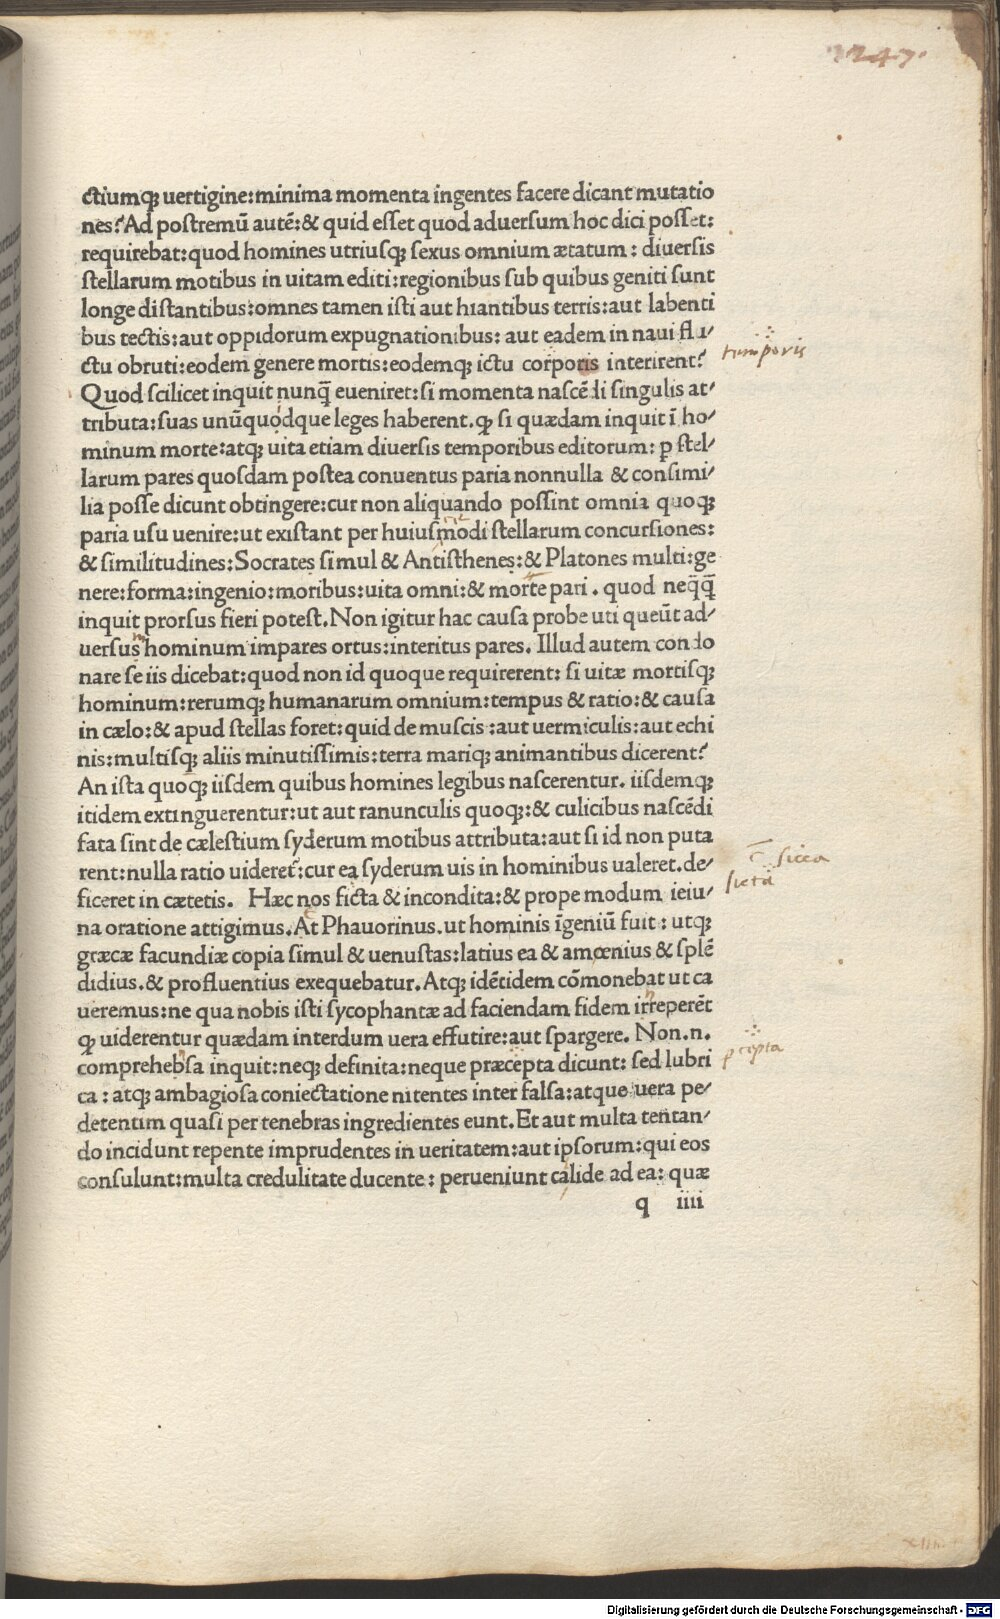 1247.
ctiumqꝫ uertigine:minima momenta ingentes facere dicant mutatio
nes?Ad postremū autē:& quid esset quod aduersum hoc dici posset:
requirebat:quod homines utriusqꝫ sexus omnium ætatum: diuersis
stellarum motibus in uitam editi:regionibus sub quibus geniti sunt
longe distantibus:omnes tamen isti aut hiantibus terris:aut labenti
bus tectis:aut oppidorum expugnationibus: aut eadem in naui flu/
ctu obruti:eodem genere mortis:eodemqꝫ ictu corporis interirent?
temporis
Quod scilicet inquit nunq̄ eueniret:si momenta nascēdi singulis at/
tributa:suas unūquodque leges haberent.qꝫ si quædam inquit ī ho/
minum morte:atqꝫ uita etiam diuersis temporibus editorum: ꝑ stel/
larum pares quosdam postea conuentus paria nonnulla & consimi/
lia posse dicunt obtingere:cur non aliquando possint omnia quoqꝫ
paria usu uenire:ut existant per huiusmodi stellarum concursiones:
& similitudines:Socrates simul & Antisthenes:& Platones multi:ge
nere:forma:ingenio:moribus:uita omni:& morte pari. quod neq̄q̄
inquit prorsus fieri potest.Non igitur hac causa probe uti queūt ad/
uersus hominum impares ortus:interitus pares. Illud autem condo
nare se iis dicebat:quod non id quoque requirerent: si uitæ mortisqꝫ
hominum:rerumqꝫ humanarum omnium:tempus & ratio:& causa
in cælo:& apud stellas foret:quid de muscis:aut uermiculis:aut echi
nis:multisqꝫ aliis minutissimis:terra mariqꝫ animantibus dicerent?
An ista quoqꝫ iisdem quibus homines legibus nascerentur. iisdemqꝫ
itidem extinguerentur:ut aut ranunculis quoqꝫ:& culicibus nascēdi
fata sint de cælestium syderum motibus attributa:aut si id non puta
rent:nulla ratio uideret̃:cur ea syderum uis in hominibus ualeret.de/
sicca
ficeret in cætetis. Hæc nos ficta & incondita:& prope modum ieiu/
na oratione attigimus.At Phauorinus.ut hominis īgeniū fuit: utqꝫ
græcæ facundiæ copia simul & uenustas:latius ea & amœnius & splē
didius.& profluentius exequebatur.Atqꝫ idētidem cōmonebat ut ca
ueremus:ne qua nobis isti sycophantæ ad faciendam fidem irreperēt
qꝫ uiderentur quædam interdum uera effutire:aut spargere. Non.n.
comprehebsa inquit:neqꝫ definita:neque præcepta dicunt: sed lubri
ca: atqꝫ ambagiosa coniectatione nitentes inter falsa:atque uera pe/
detentim quasi per tenebras ingredientes eunt.Et aut multa tentan/
do incidunt repente imprudentes in ueritatem:aut ipsorum:qui eos
consulunt:multa credulitate ducente: perueniunt calide ad ea: quæ
q iiii
Digitalisierung gefördert durch die Deutsche Forschungsgemeinschaft - DFG